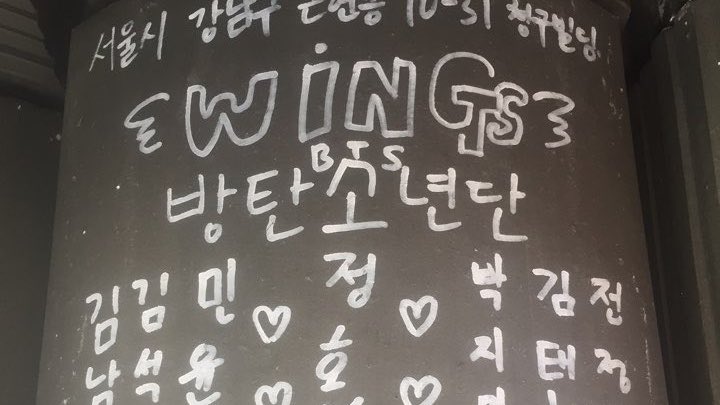 서울시 강남구 논현동 10-31 청구빌딩
WINGS
BTS
방탄소년단
김김 민 ♡ 정 ♡ 박 김 전
남 석 윤 ♡ 호 ♡ 지 태 정